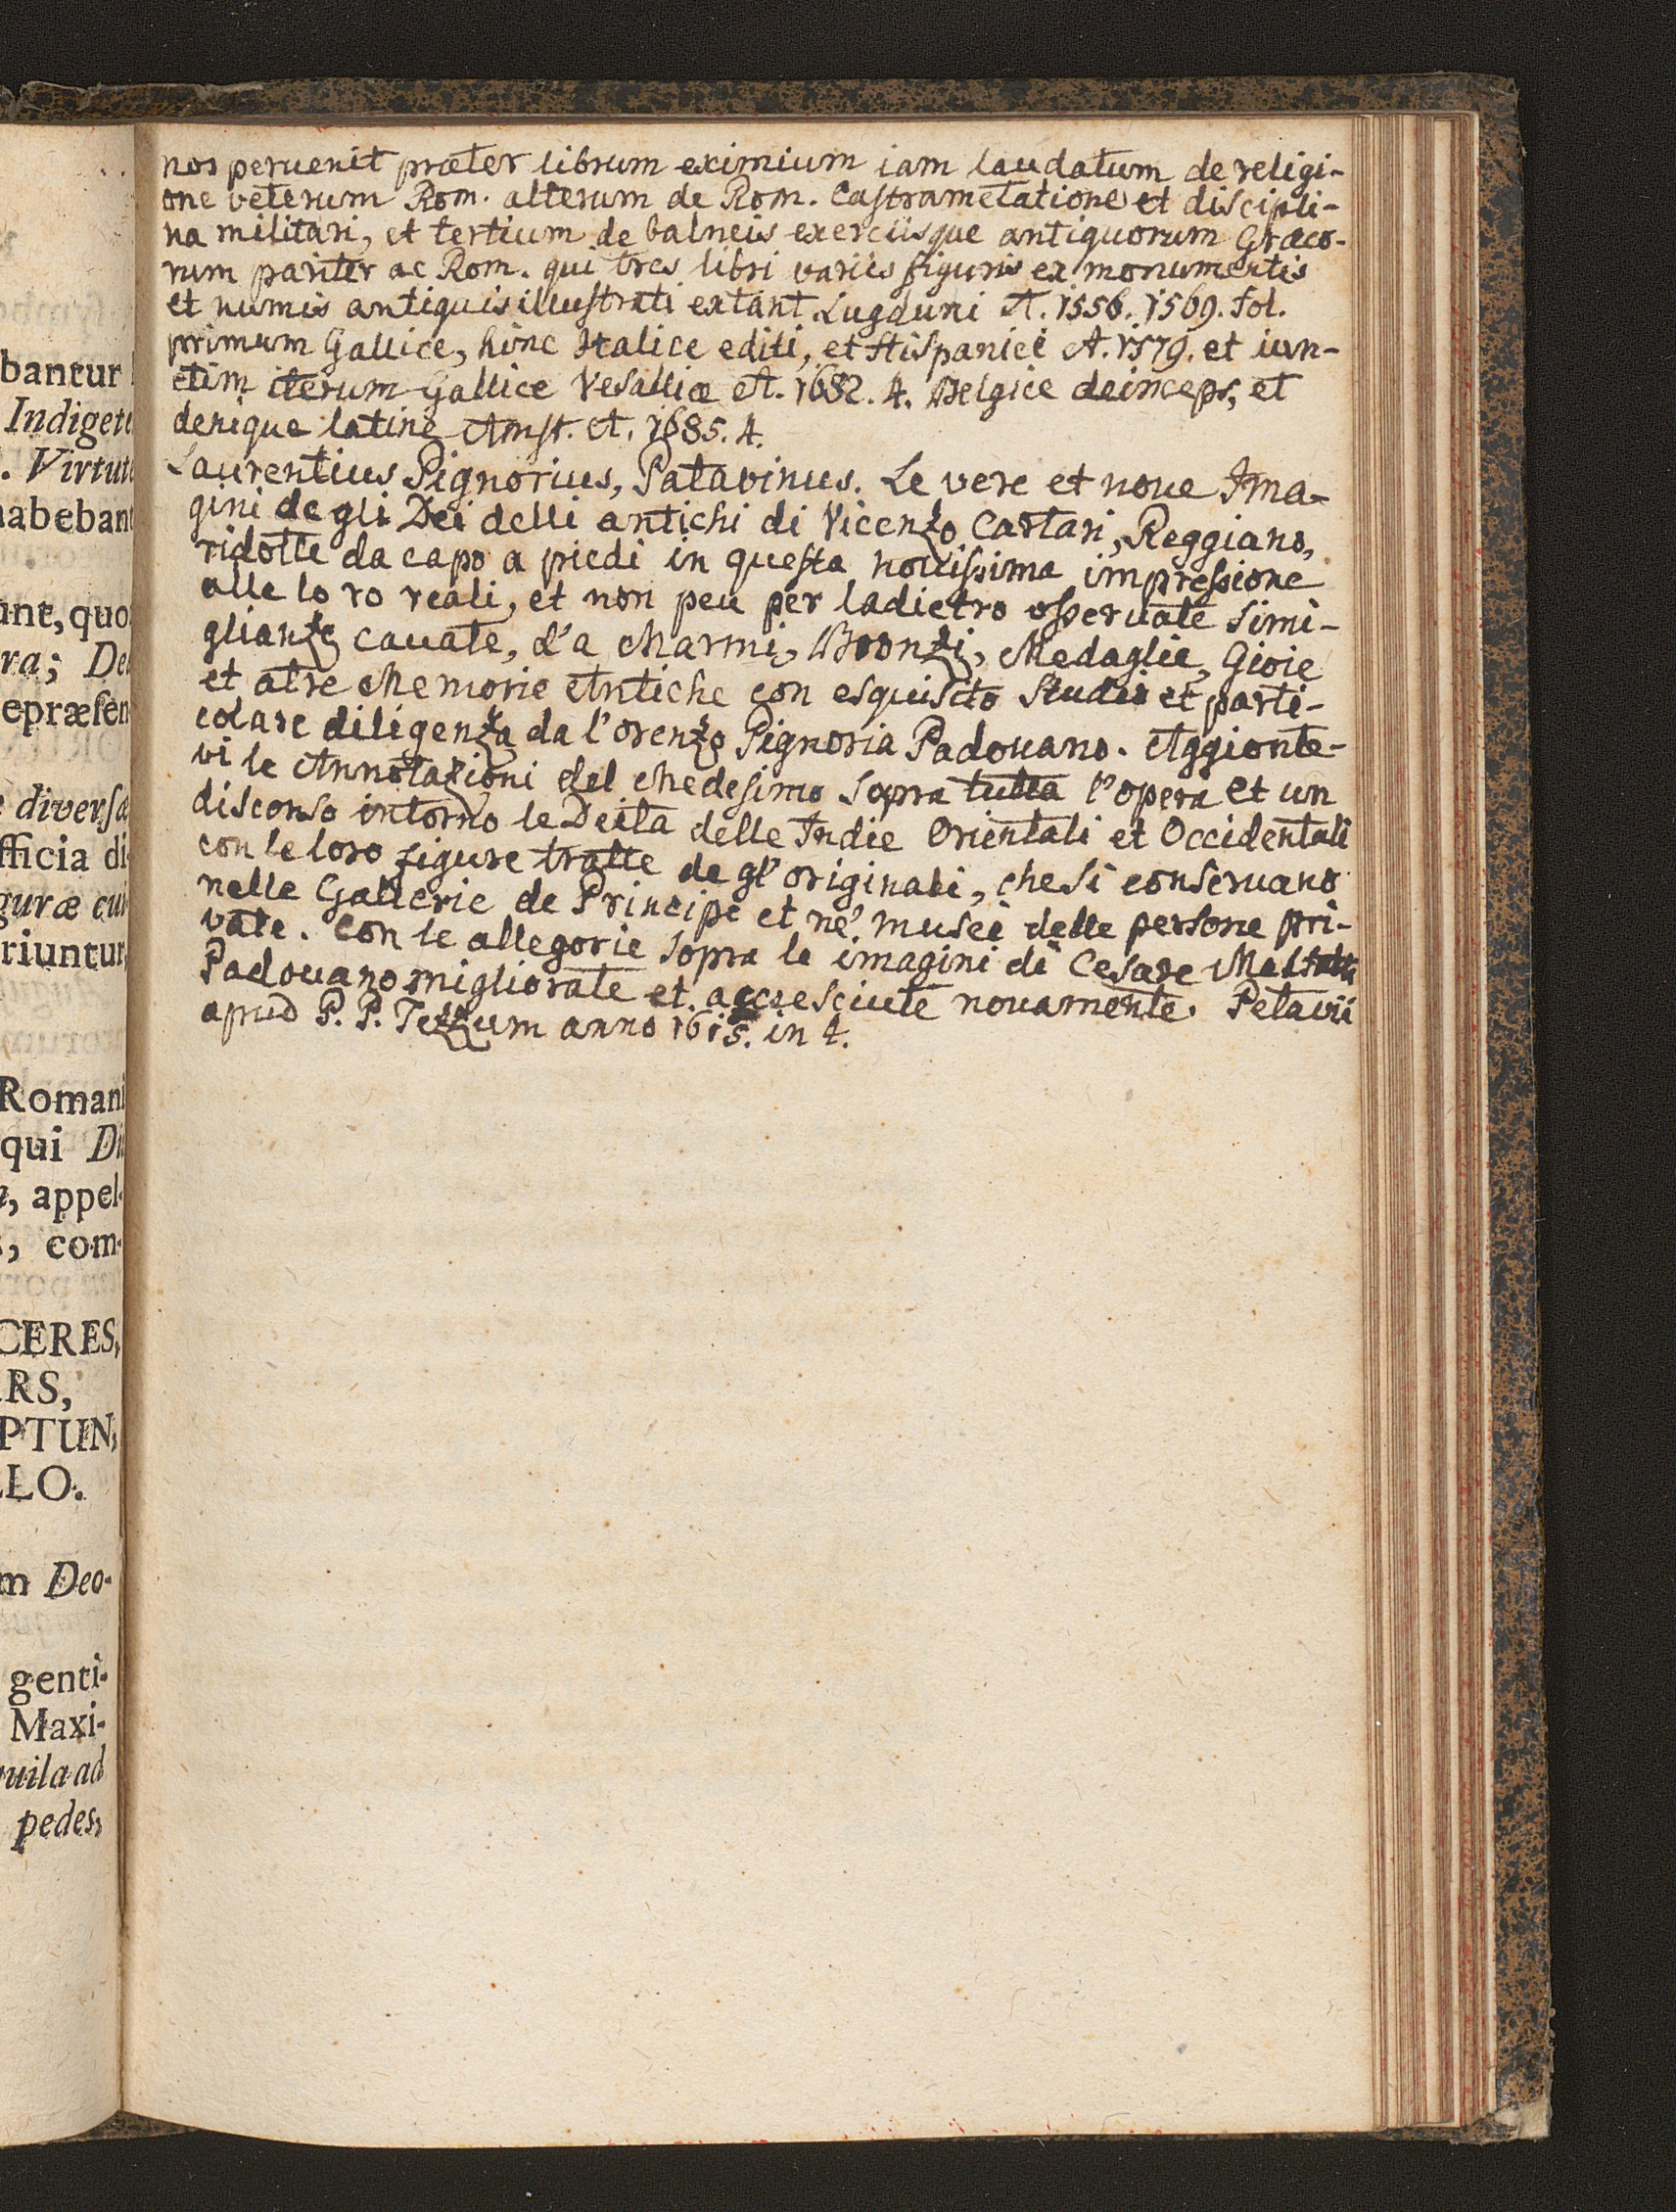 bantur
Indigete
. Virtut
habebant
unt, quo
ra; De
epræsen
diversæ
fficia di-
guræ cui
riuntur,
Romani
qui Di
, appel-
, com-
CERES,
RS,
PTUN,
LLO.
m Deo-
genti-
Maxi-
uila ad
pedes,
nos peruenit præter librum eximium iam laudatum de religi-
one veterum Rom. alterum de Rom. Castrametatione et discipli-
na militari, et tertium de balneis exerciisque antiquorum Græco-
rum pariter ac Rom. qui tres libri variis figuris ex monumentis
et numis antiquis illustrati extant Lugduni A. 1556. 1569. fol.
primum Gallice, hinc Italice editi, et Hispanice A. 1579. et iun-
ctim iterum Gallice Vesalliæ A. 1682. 4. Belgice deinceps, et
denique latine Amst. A. 1685. 4.
Laurentius Pignorius, Patavinus. Le vere et noue Ima-
gini de gli Dei delli antichi di Vicenzo Cartari, Reggiano,
ridotte da capo a piedi in questa nouissima impressione
alle lo ro reali, et non peu per ladietro osseruate simi-
glianze cauate, d'a Marmi, Bronzi, Medaglie, Gioie
et atre Memorie Antiche con esquisito studio et parti-
colare diligenza da l'orenzo Pignoria Padouano. Aggionte-
vi le Annotazioni del Medesimo sopra tutta l'opera et un
disconso intorno le Deita delle Indie Orientali et Occidentali
con le loro figure tratte de gl' originali, che si conseruano
nelle Gallerie de Principi et ne' musei delle persone pri-
vate. Con le allegorie sopra le imagini di Cesare
Padouano migliorate et accresciute nouamente. Petavii
apud P. P. Tozzum anno 1615. in 4.